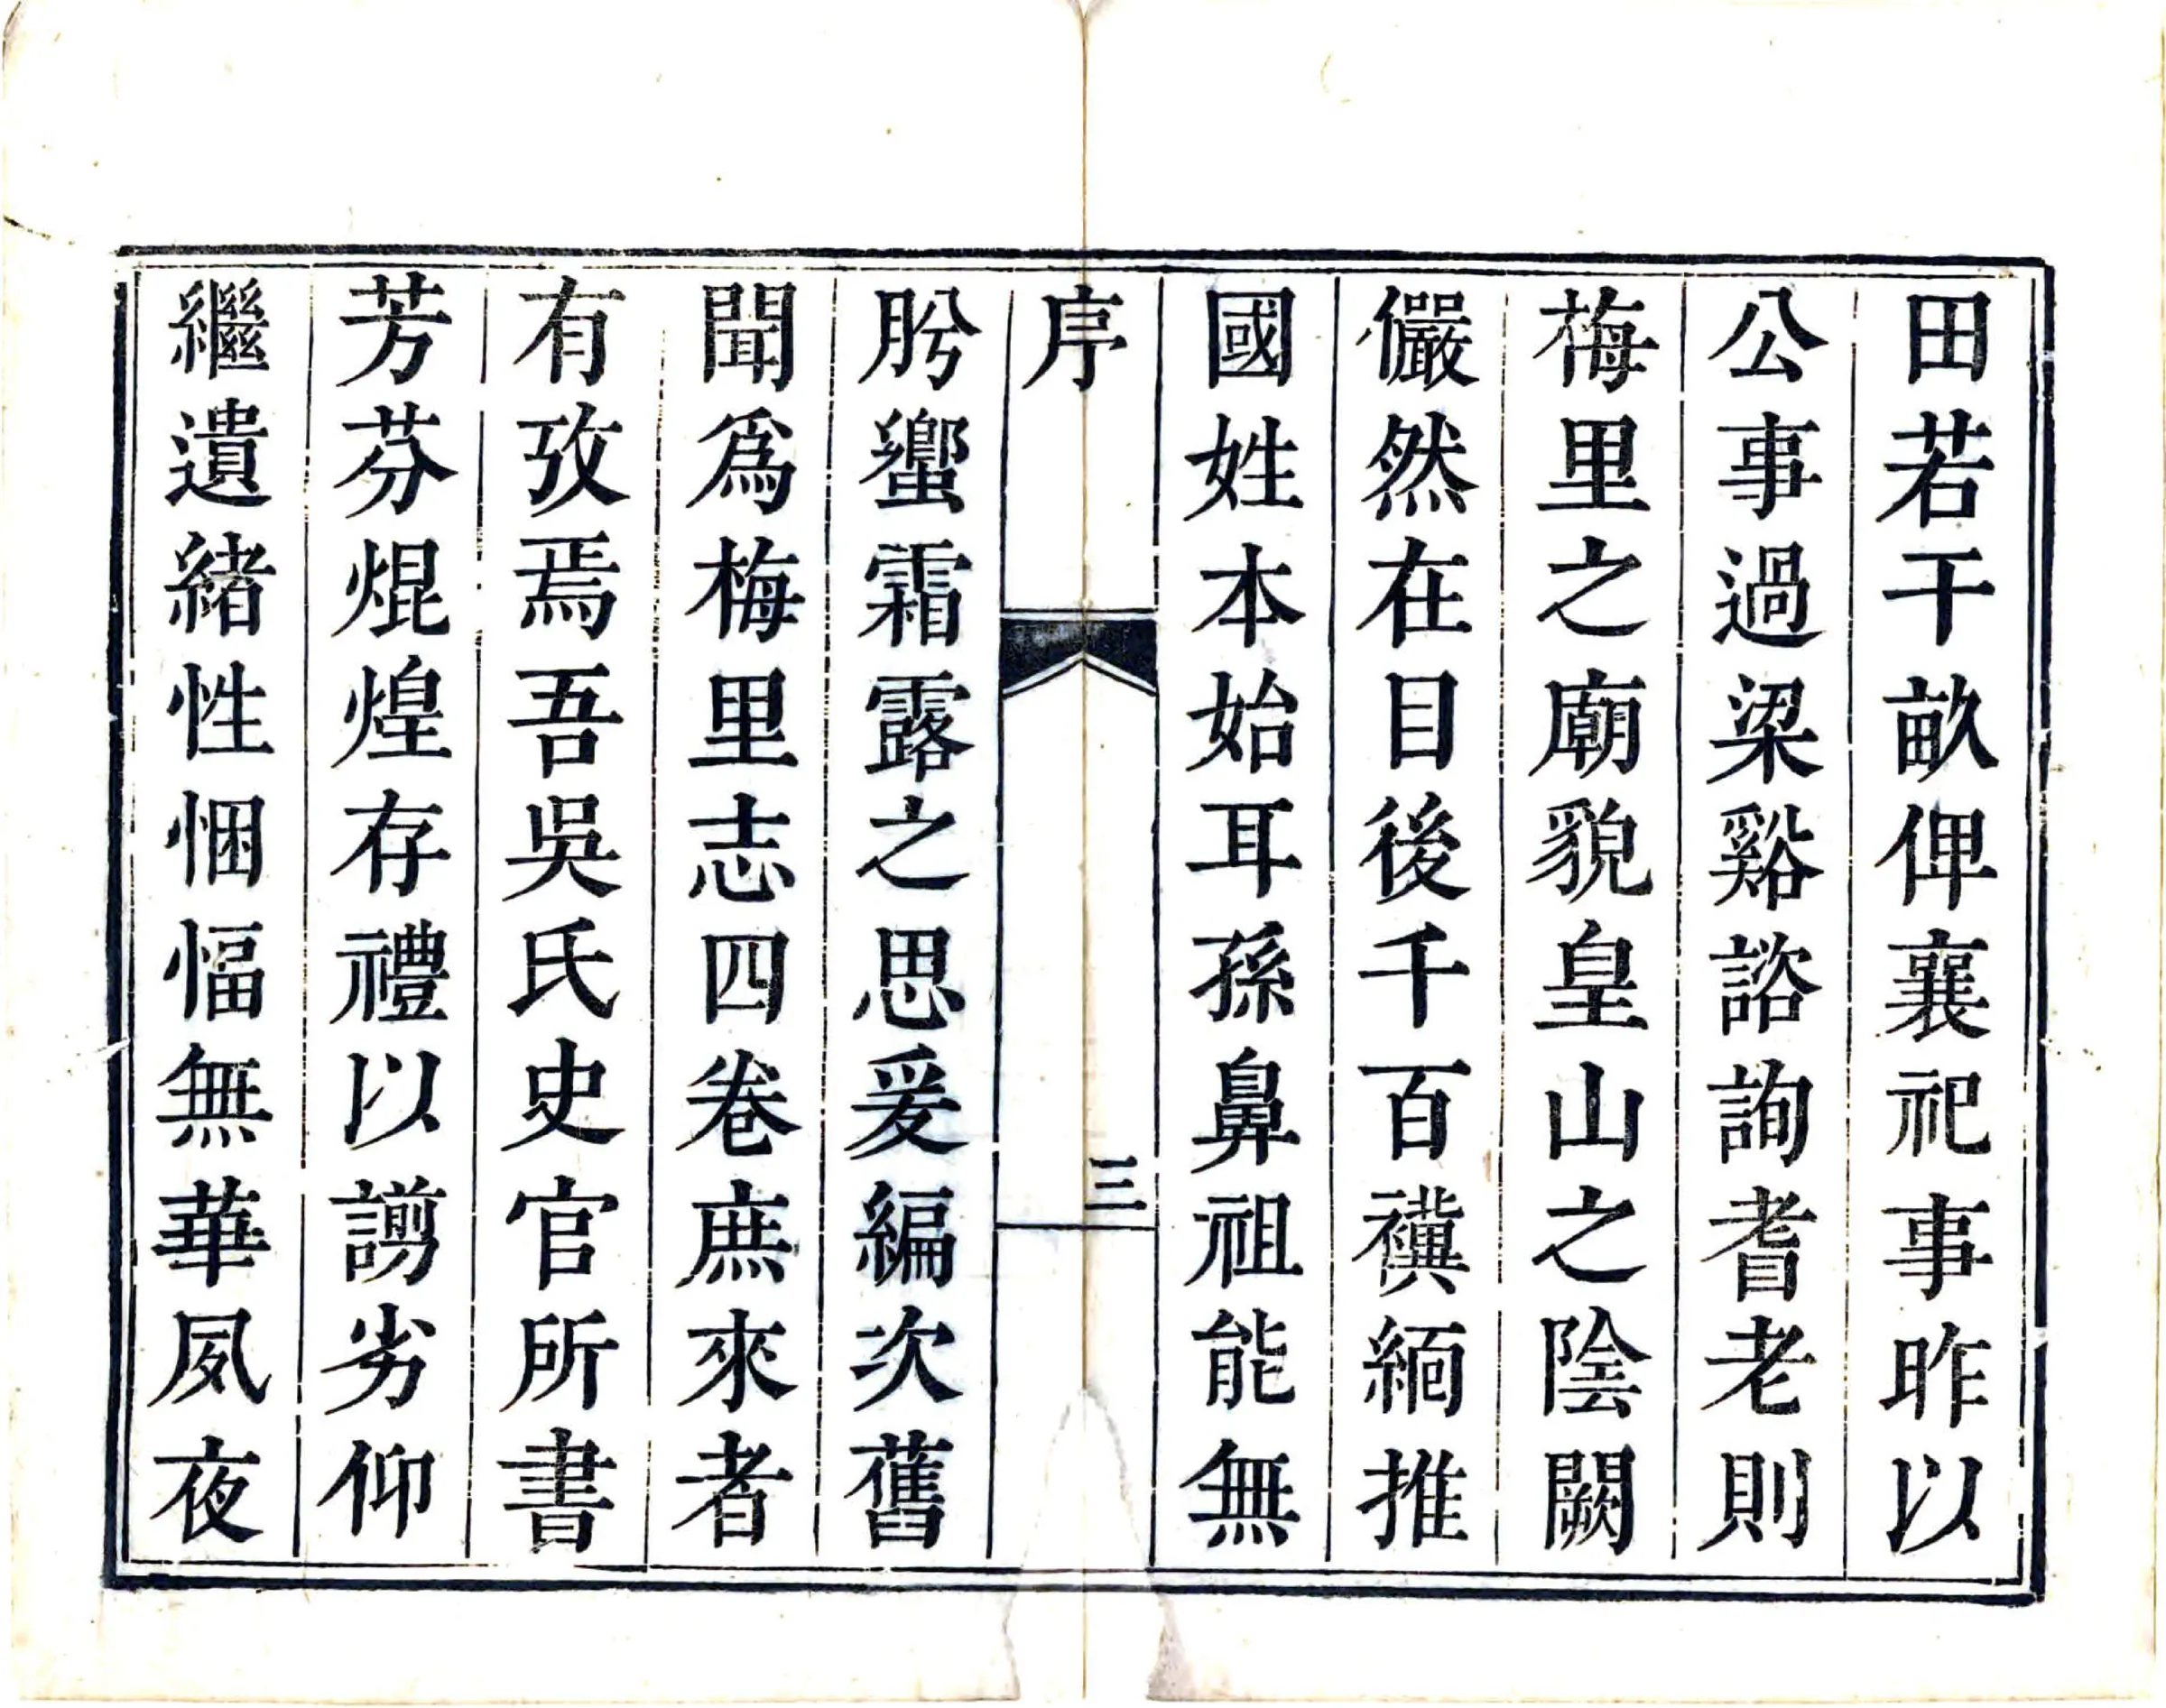 田若干畝俾襄祀事昨以
公事過梁谿諮詢耆老則
梅里之廟貌皇山之陰闕
儼然在目後千百禩緬推
國姓本始耳孫鼻祖能無
序
三
肹蠁霜露之思爰編次舊
聞爲梅里志四卷庶來者
有攷焉吾吳氏史官所書
芳芬焜煌存禮以謭劣仰
繼遺緒性悃愊無華夙夜